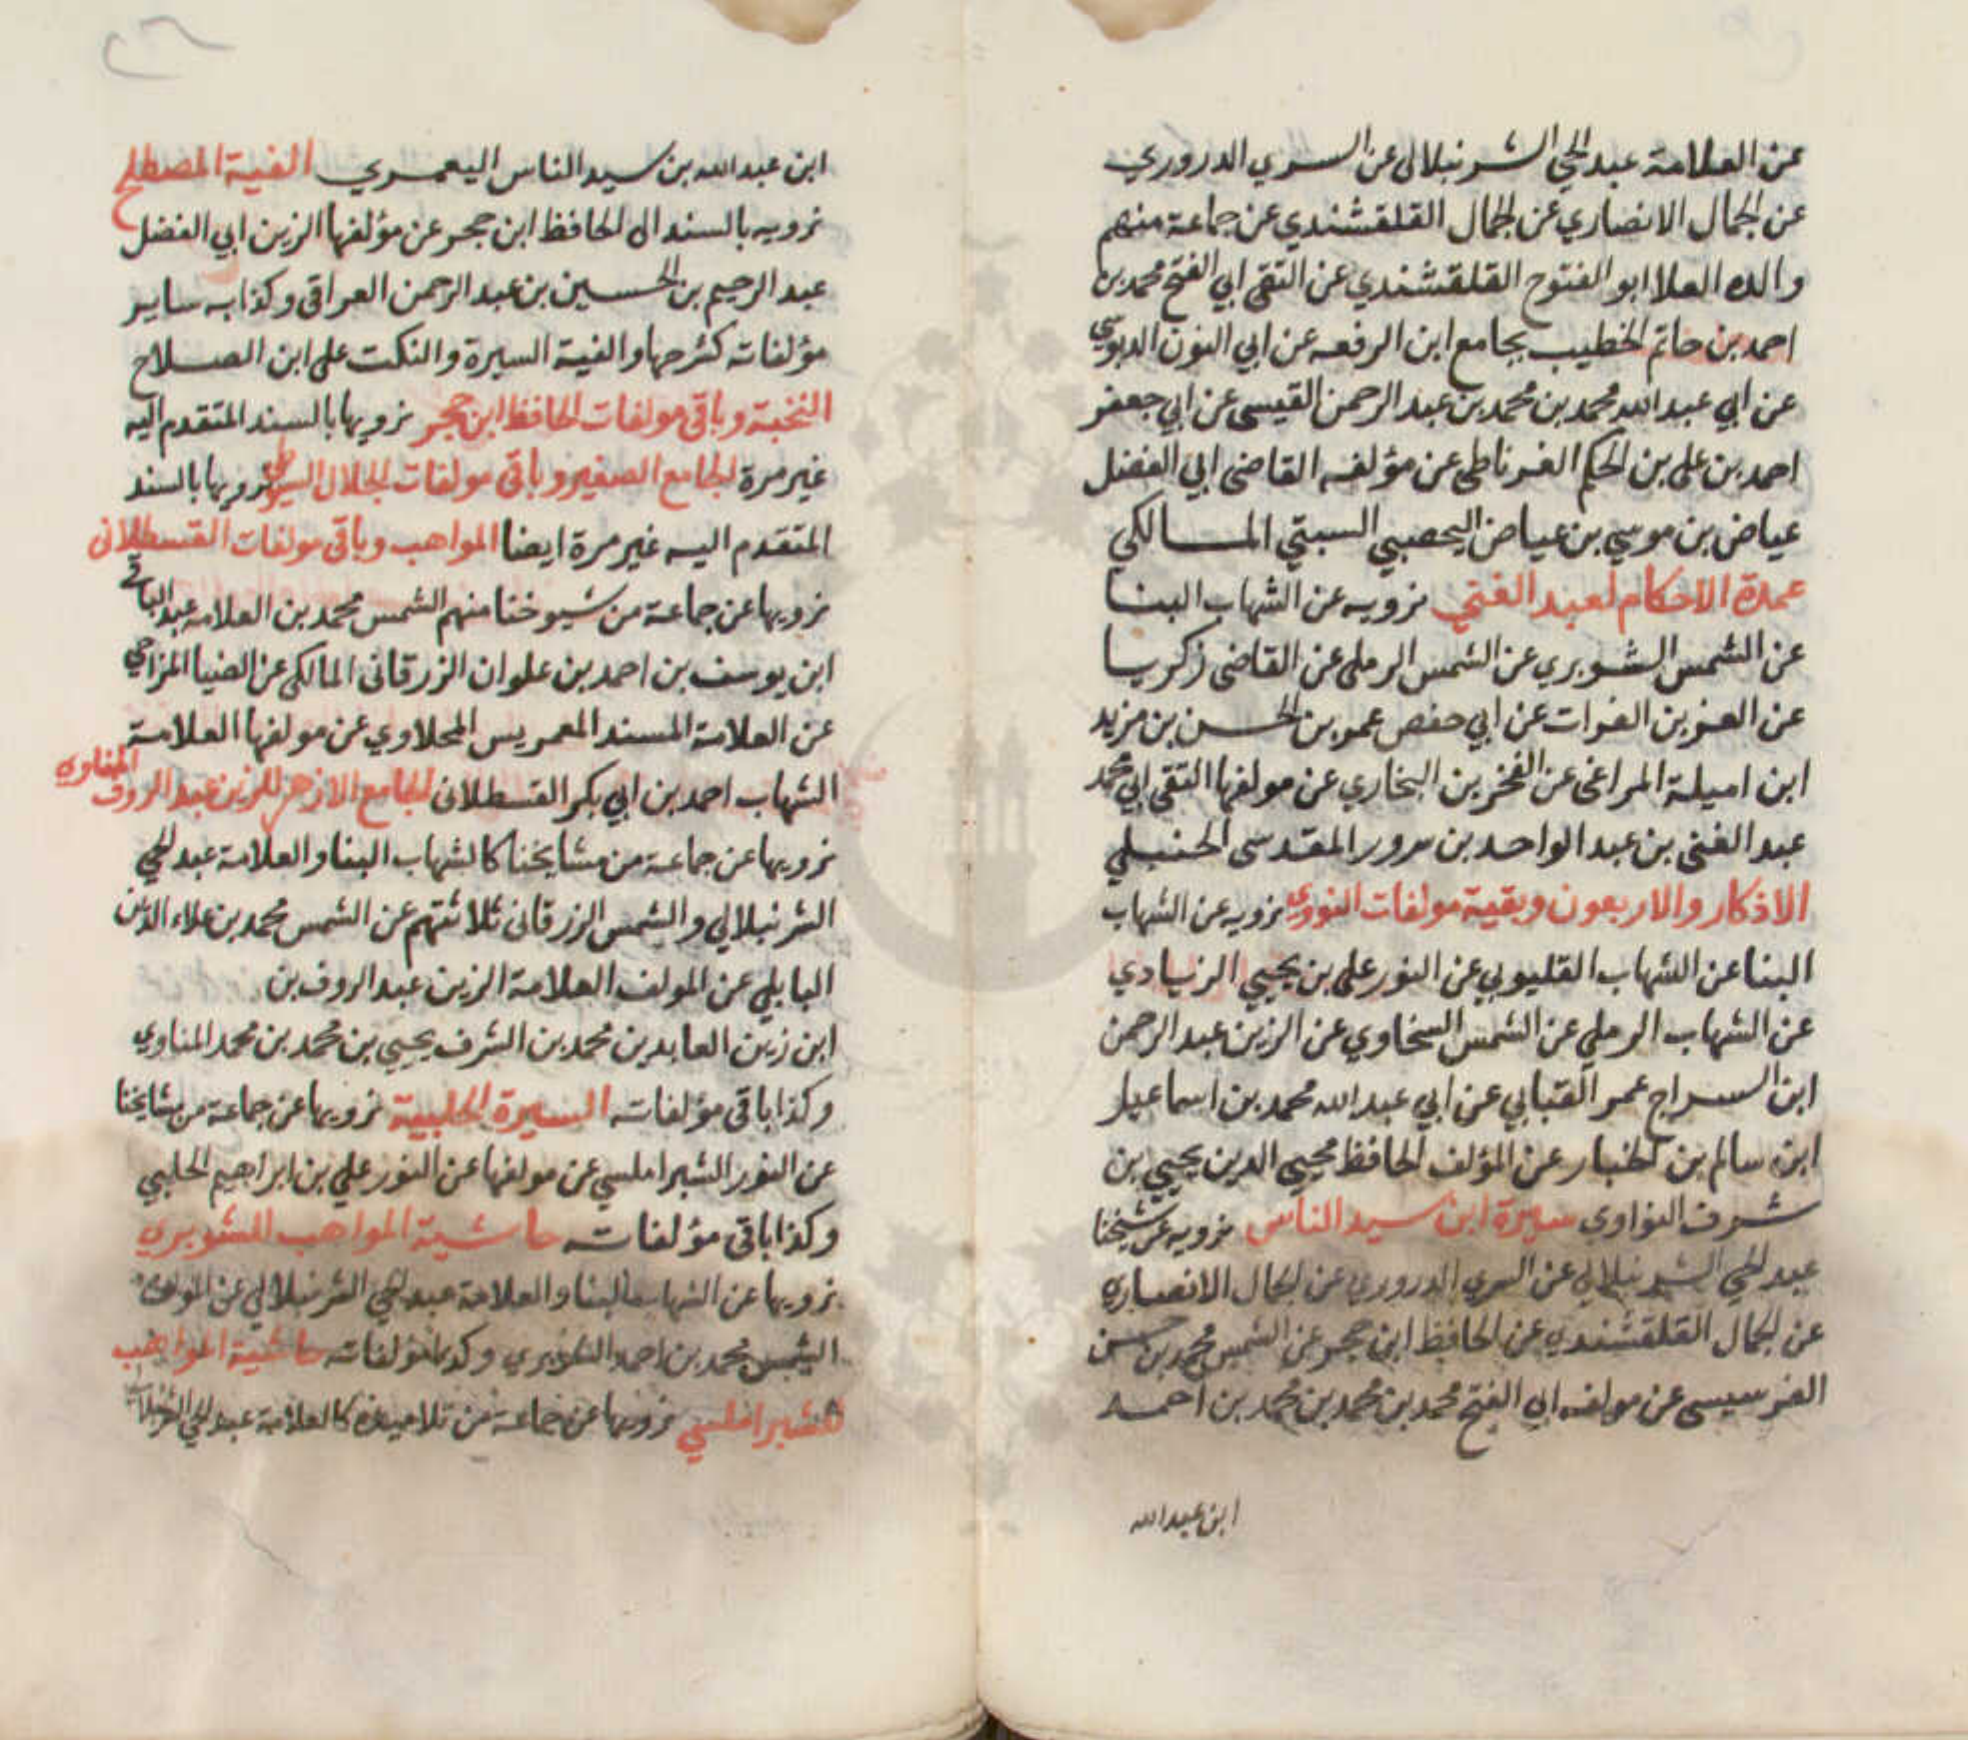 عن العلامة عبد الحي الشرنبلالي عن السري الدروري
عن الجمال الانصاري عن الجمال القلقشندي عن جماعة منهم
والده العلا ابو الفتوح القلقشندي عن التقي ابي الفتح محمد بن
احمد بن حاتم الخطيب بجامع ابن الرفعه عن ابي النون الدبوسي
عن ابي عبد الله محمد بن محمد بن عبد الرحمن القيسي عن ابي جعفر
احمد بن علي بن الحكم الغرناطي عن مؤلفه القاضي ابي الفضل
عياض بن موسي بن عياض اليحصبي السبتي المالكي
عمدة الاحكام لعبد الغني نرويه عن الشهاب البنا
عن الشمس الشوبري عن الشمس الرملي عن القاضي زكريا
عن العز بن الفرات عن ابي حفص عمر بن الحسن بن مزيد
ابن اميلة المراغي عن الفخر بن البخاري عن مولفها التقي ابي محمد
عبد الغني بن عبد الواحد بن سرور المقدسي الحنبلي
الاذكار والاربعون وبقية مولفات النووي نرويه عن الشهاب
البنا عن الشهاب القليوبي عن النور علي بن يحيي الزيادي
عن الشهاب الرملي عن الشمس السخاوي عن الزين عبد الرحمن
ابن السراج عمر القبابي عن ابي عبد الله محمد بن اسماعيل
ابن سالم بن الخباز عن المؤلف الحافظ محيي الدين يحيي بن
شرف النواوي سيرة ابن سيد الناس نرويه عن شيخنا
عبد الحي الشرنبلالي عن السري الدروري عن الجمال الانصاري
عن الجمال القلقشندي عن الحافظ ابن حجر عن الشمس محمد بن حسن
الفرسيسي عن مولفه ابي الفتح محمد بن محمد بن محمد بن احمد
ابن عبد الله
ابن عبد الله بن سيد الناس اليعمري الفية المصطلح
نرويه بالسند الى الحافظ ابن حجر عن مؤلفها الزين ابي الفضل
عبد الرحيم بن الحسين بن عبد الرحمن العراقي وكذا به ساير
مؤلفاته كشرحها والفية السيرة والنكت على ابن الصلاح
النخبة وباقي مولفات الحافظ ابن حجر نرويها بالسند المتقدم اليه
غير مرة الجامع الصغير وباقي مولفات الجلال السيوطي نرويها بالسند
المتقدم اليه غير مرة ايضا المواهب وباقي مولفات القسطلاني
نرويها عن جماعة من شيوخنا منهم الشمس محمد بن العلامه عبد الباقي
ابن يوسف بن احمد بن علوان الزرقاني المالكي عن الضيا المزاحي
عن العلامة المسند المعمر يس المحلاوي عن مولفها العلامة
الشهاب احمد بن ابي بكر القسطلاني الجامع الازهر للزين عبد الروف المناوي
نرويها عن جماعة من مشايخنا كالشهاب البنا والعلامة عبد الحي
الشرنبلالي والشمس الزرقاني ثلاثتهم عن الشمس محمد بن علاء الدين
البابلي عن المولف العلامة الزين عبد الروف بن
ابن زين العابدين محمد بن الشرف يحيي بن محمد بن محمد المناوي
وكذا باقي مؤلفاته السيرة الحلبية نرويها عن جماعة من مشايخنا
عن النور الشبراملسي عن مولفها عن النور علي بن ابراهيم الحلبي
وكذا باقي مؤلفاته حاشية المواهب للشوبري
نرويها عن الشهاب البنا والعلامة عبد الحي الشرنبلالي عن المولف
الشمس محمد بن احمد الشوبري وكذا مؤلفاته حاشية المواهب
للشبراملسي نرويها عن جماعة من تلاميذه كالعلامة عبد الحي الشرنبلالي